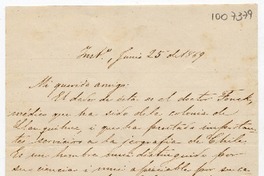 1007379
Inst.º, Junio 25 de 1869
Mi querido amigo:
El dador de esta es el doctor Fonck,
médico que ha sido de la colonia de
Llanquihue, i que ha prestado importan-
tes servicios a la jeografía de Chile.
Es un hombre mui distinguido por
su ciencia i mui apreciable por su ca